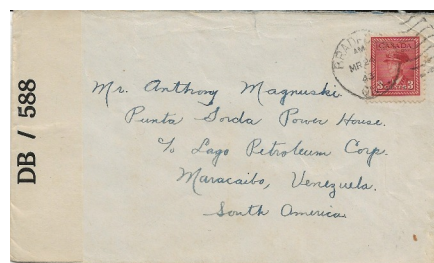 DB / 588
CANADA
3 CENTS 3
AM
MR 2
43
Mr. Anthony Magnuski
Punta Gorda Power House.
c/o Lago Petroleum Corp.
Maracaibo, Venezuela.
South America